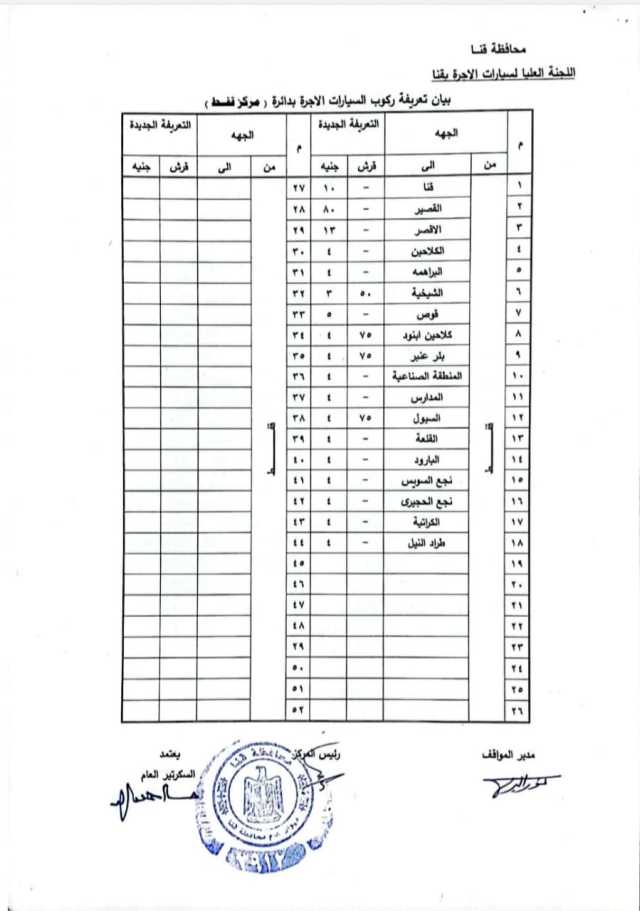 محافظة قنـا
اللجنة العليا لسيارات الاجرة بقنا
بيان تعريفة ركوب السيارات الاجرة بدائرة ( مركز قفـط )
م الجهه التعريفة الجديدة م الجهه التعريفة الجديدة
من الى قرش جنيه من الى قرش جنيه
١ قنا - ١٠ ٢٧
٢ القصير - ٨٠ ٢٨
٣ الاقصر - ١٣ ٢٩
٤ الكلاحين - ٤ ٣٠
٥ البراهمه - ٤ ٣١
٦ الشيخية ٥٠ ٣ ٣٢
٧ قوص - ٥ ٣٣
٨ كلاحين ابنود ٧٥ ٤ ٣٤
٩ بئر عنبر ٧٥ ٤ ٣٥
١٠ المنطقة الصناعية - ٤ ٣٦
١١ المدارس - ٤ ٣٧
١٢ السيول ٧٥ ٤ ٣٨
قفـــط قفـــط
١٣ القلعة - ٤ ٣٩
١٤ البارود - ٤ ٤٠
١٥ نجع السويس - ٤ ٤١
١٦ نجع الحجيرى - ٤ ٤٢
١٧ الكراتية - ٤ ٤٣
١٨ طراد النيل - ٤ ٤٤
١٩ ٤٥
٢٠ ٤٦
٢١ ٤٧
٢٢ ٤٨
٢٣ ٢٩
٢٤ ٥٠
٢٥ ٥١
٢٦ ٥٢
مدير المواقف رئيس المركز يعتمد
السكرتير العام
محافظة قنا